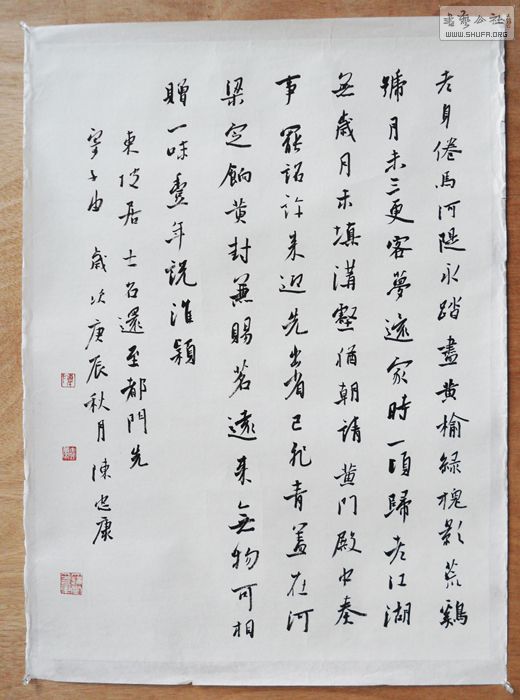 老身倦馬河隄永踏盡黄榆緑槐影荒鷄
號月未三更客夢還家時一頃歸老江湖
無歲月未填溝壑猶朝請黄門殿中奏
事罷詔許來迎先出省已飛青蓋在河
梁定餉黄封兼賜茗遠來無物可相
贈一味豐年説淮潁
東坡居士召還至都門先
寄子由 歲次庚辰秋月 陳忠康
WWW.SHUFA.ORG